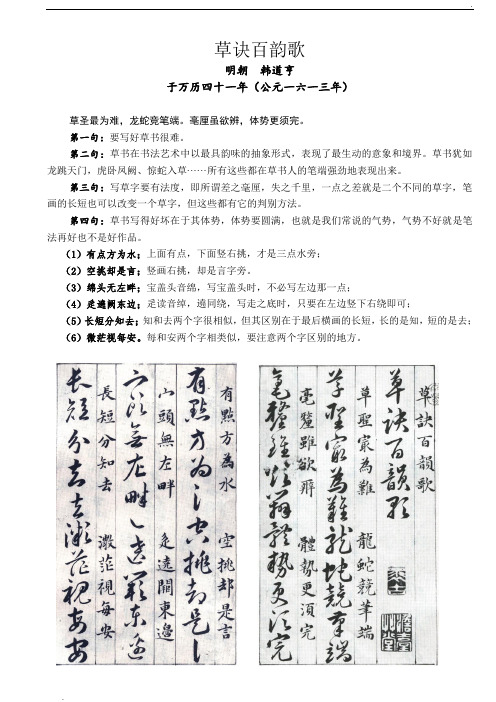 草诀百韵歌
明朝 韩道亨
于万历四十一年（公元一六一三年）
草圣最为难，龙蛇竞笔端。毫厘虽欲辨，体势更须完。
第一句：要写好草书很难。
第二句：草书在书法艺术中以最具韵味的抽象形式，表现了最生动的意象和境界。草书犹如
龙跳天门，虎卧凤阙、惊蛇入草……所有这些都在草书人的笔端强劲地表现出来。
第三句：写草字要有法度，即所谓差之毫厘，失之千里，一点之差就是二个不同的草字，笔
画的长短也可以改变一个草字，但这些都有它的判别方法。
第四句：草书写得好坏在于其体势，体势要圆满，也就是我们常说的气势，气势不好就是笔
法再好也不是好作品。
（1）有点方为水；上面有点，下面竖右挑，才是三点水旁；
（2）空挑却是言；竖画右挑，却是言字旁。
（3）绵头无左畔；宝盖头音绵，写宝盖头时，不必写左边那一点；
（4）辵遶阙东边；辵读音绰，遶同绕，写走之底时，只要在左边竖下右绕即可；
（5）长短分知去；知和去两个字很相似，但其区别在于最后横画的长短，长的是知，短的是去；
（6）微茫视每安。每和安两个字相类似，要注意两个字区别的地方。
草訣百韻歌
草訣百韻歌
草聖最為難 龍蛇競筆端
草聖最為難龍蛇競筆端
毫釐雖欲辨 體勢更須完
毫釐雖欲辨體勢更須完
有點方為水 空挑却是言
有點方為水空挑却是言
宀頭無左畔 辵遶闕東邊
宀頭無左畔辵遶闕東邊
長短分知去 微茫視每安
長短分知去微茫視每安